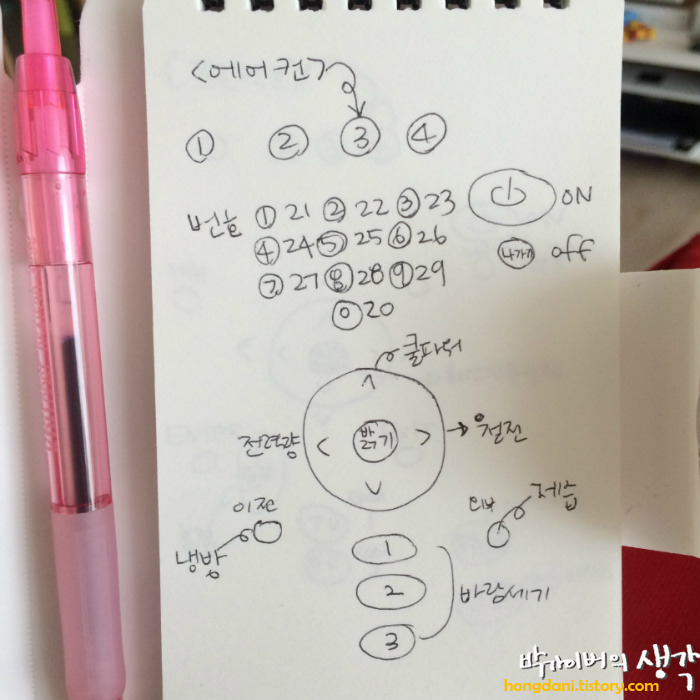 <에어컨>
① ② ③ ④
번호 ① 21 ② 22 ③ 23
④ 24 ⑤ 25 ⑥ 26
⑦ 27 ⑧ 28 ⑨ 29
⓪ 20
ON
나가기 off
쿨파워
전력량 < 밝기 > → 절전
이전
냉방
메뉴 제습
1
2
3
바람세기
박가이버의 생각
hongdani.tistory.com